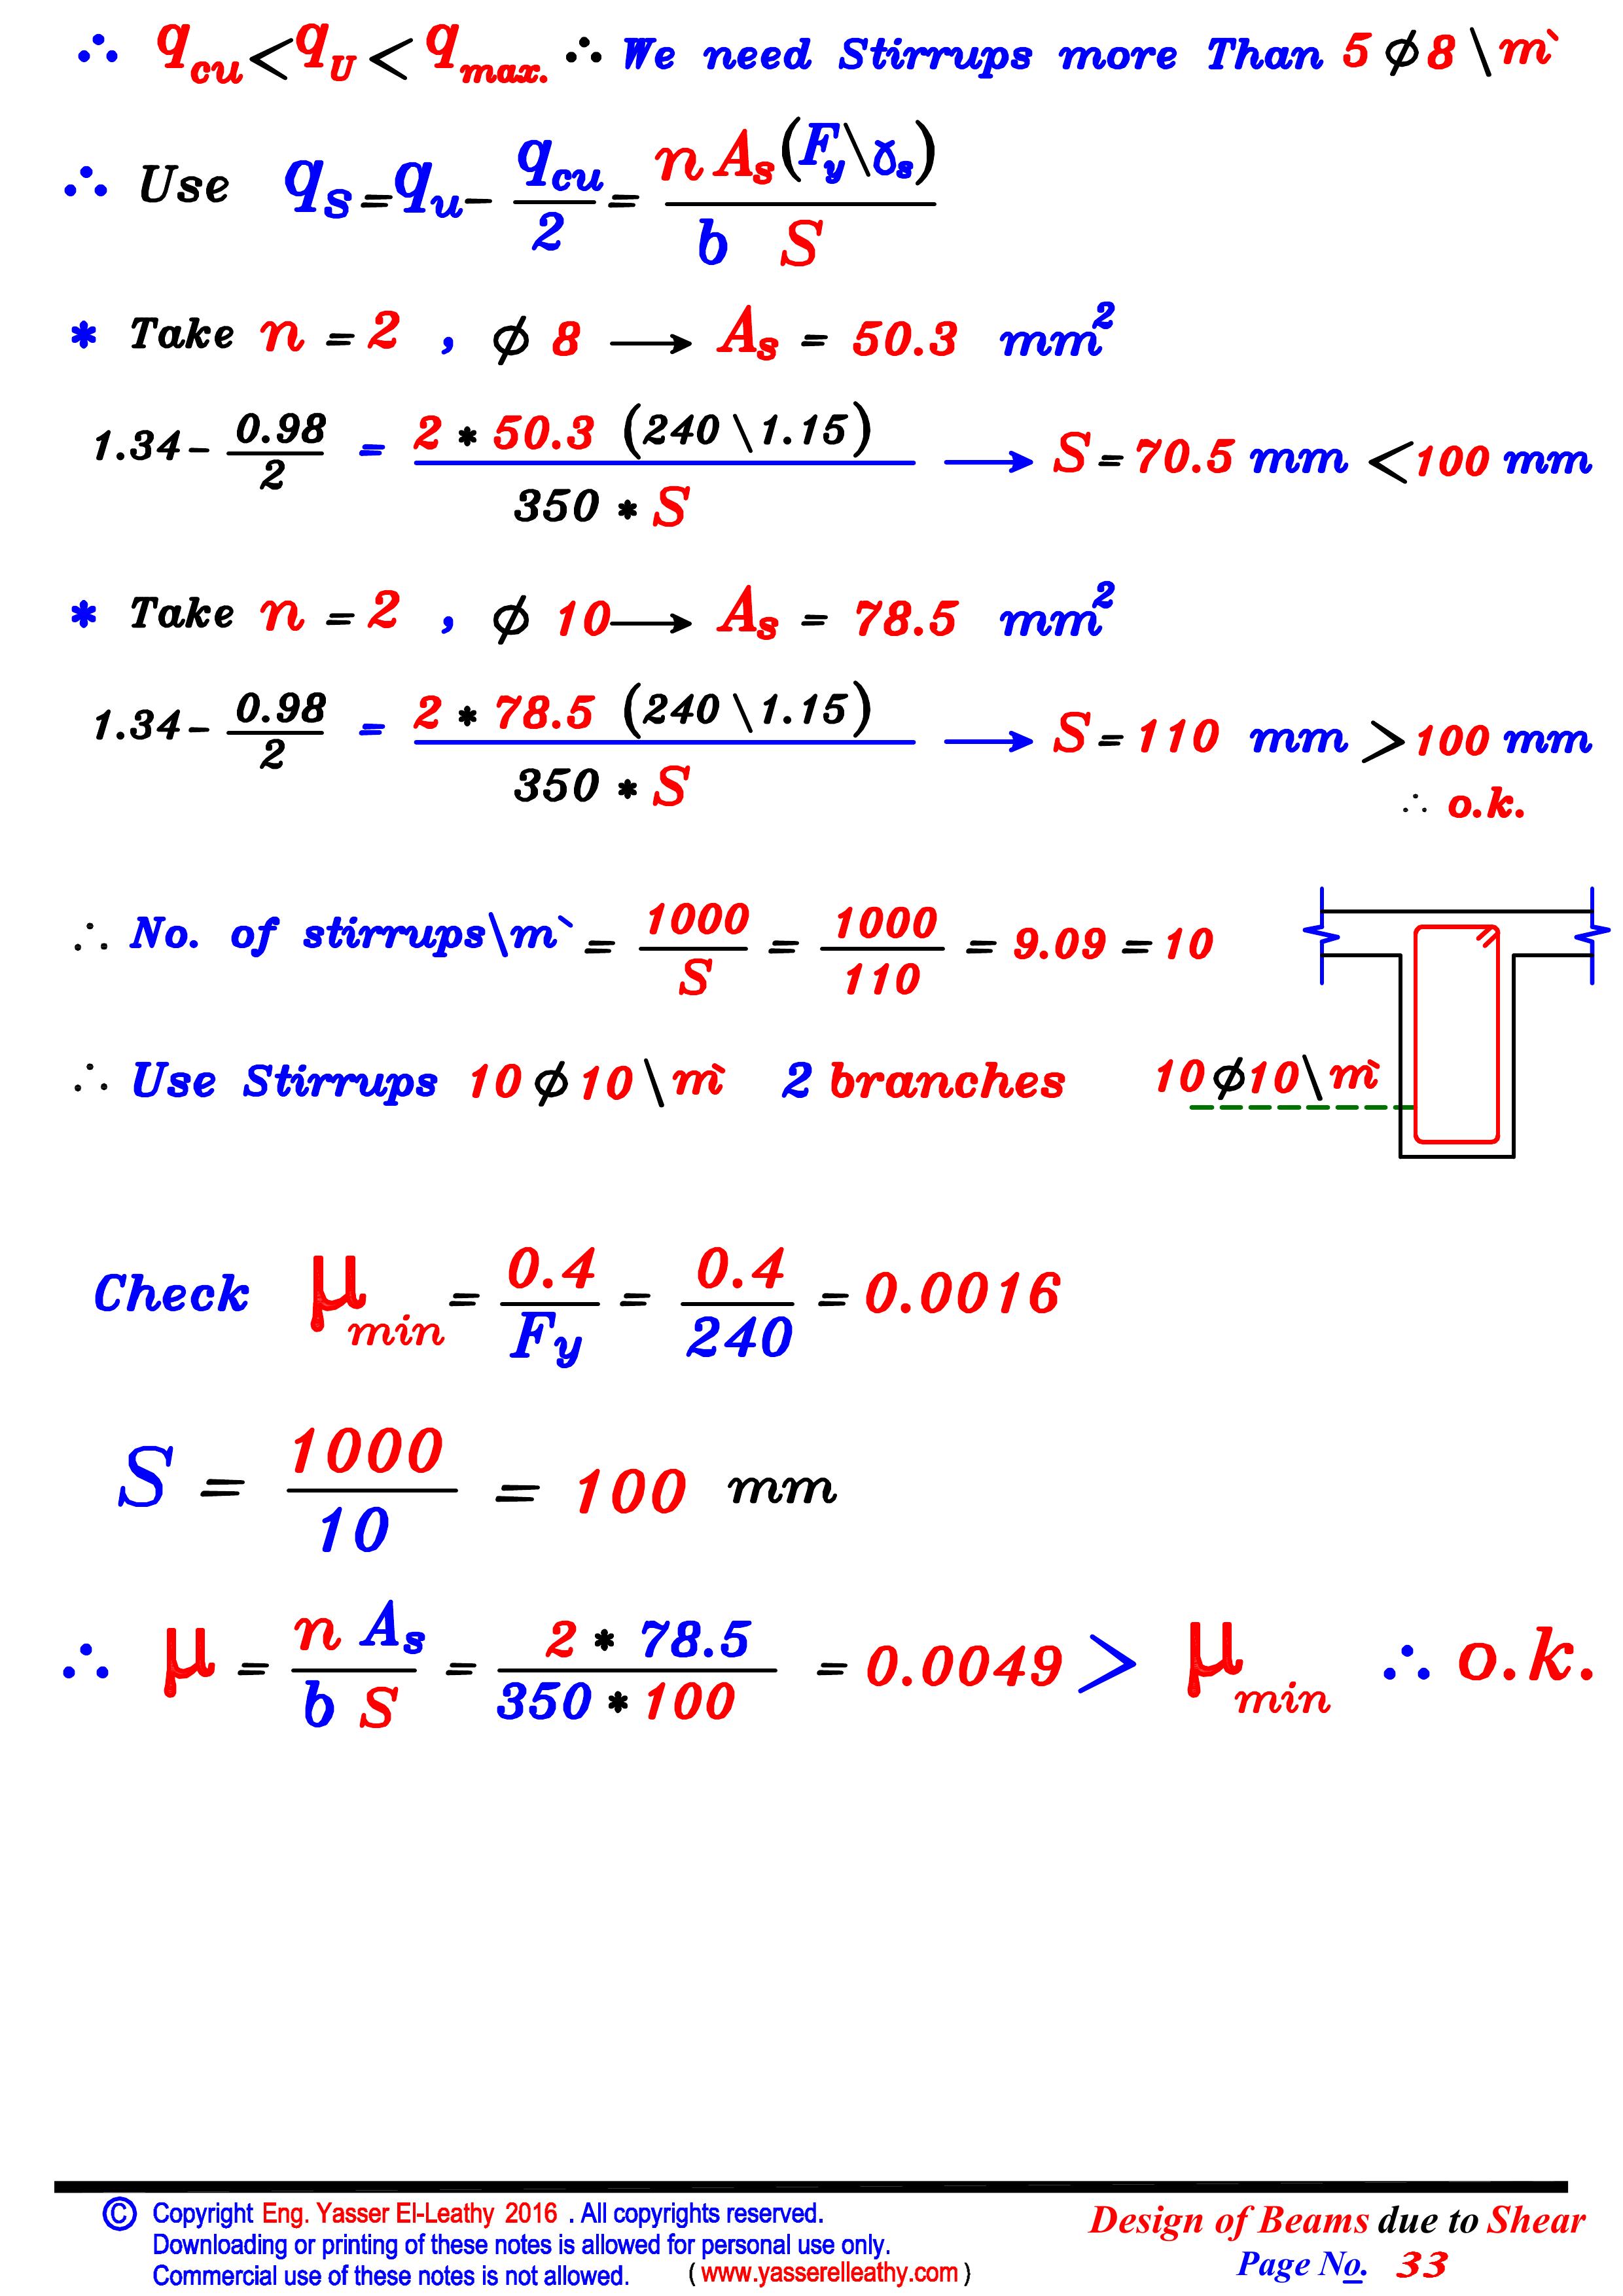 ∴ q cu < q U < q max. ∴ We need Stirrups more Than 5 ϕ 8 \ m`
∴ Use q s = q u - q cu / 2 = n A s (F y \ ɣ s) / b S
* Take n = 2 , ϕ 8 → A s = 50.3 mm 2
1.34 - 0.98 / 2 = 2 * 50.3 (240 \ 1.15) / 350 * S → S = 70.5 mm < 100 mm
* Take n = 2 , ϕ 10 → A s = 78.5 mm 2
1.34 - 0.98 / 2 = 2 * 78.5 (240 \ 1.15) / 350 * S → S = 110 mm > 100 mm
∴ o.k.
∴ No. of stirrups\m` = 1000 / S = 1000 / 110 = 9.09 = 10
∴ Use Stirrups 10 ϕ 10 \ m` 2 branches
10 ϕ 10 \ m`
Check μ min = 0.4 / F y = 0.4 / 240 = 0.0016
S = 1000 / 10 = 100 mm
∴ μ = n A s / b S = 2 * 78.5 / 350 * 100 = 0.0049 > μ min ∴ o.k.
© Copyright Eng. Yasser El-Leathy 2016 . All copyrights reserved.
Downloading or printing of these notes is allowed for personal use only.
Commercial use of these notes is not allowed. ( www.yasserelleathy.com )
Design of Beams due to Shear
Page No. 33